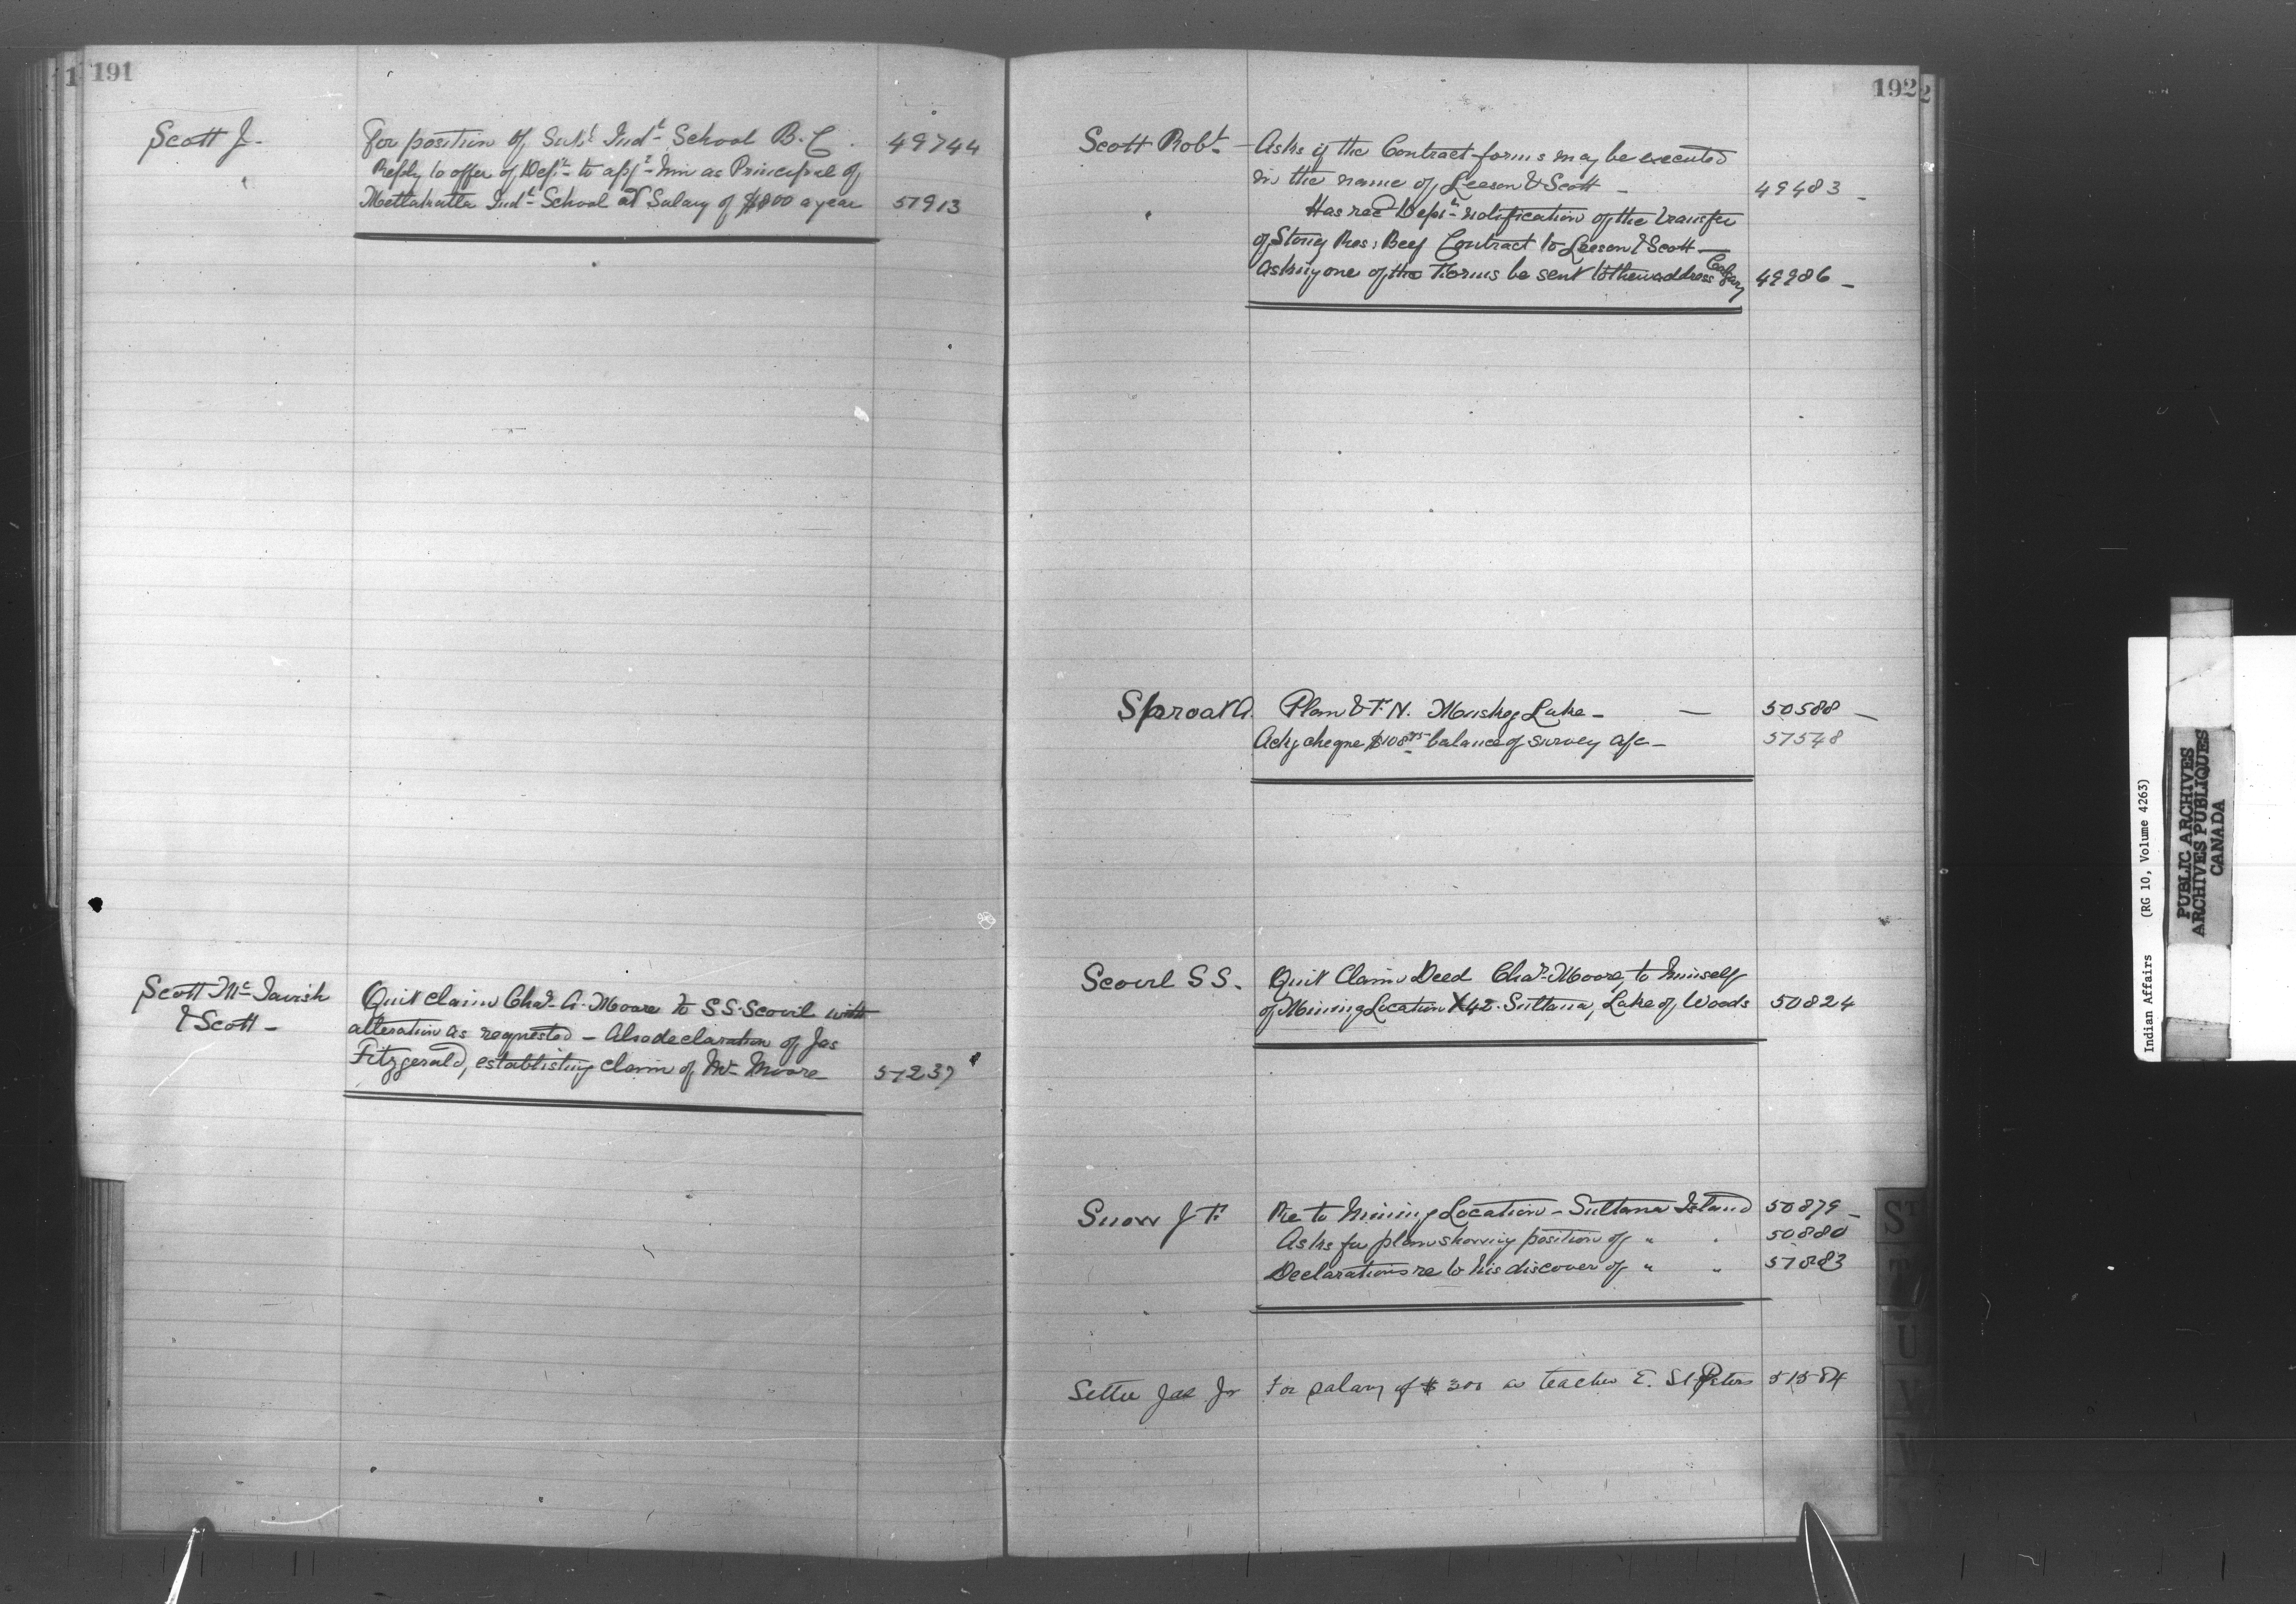 191
Scott J. For position of Supt. Indl. School B.C. 49744
" Reply to offer of Dept. to appt. him as Principal of
Metlakatla Indl. School at Salary of $800 a year 51913
Scott McTavish Quit claim Chas. A. Moore to S.S. Scovil with
& Scott - alteration as requested - Also declaration of Jas
Fitzgerald, establishing claim of Mr. Moore 51237
192
Scott Robt. - Asks if the Contract forms may be executed
in the name of Leeson & Scott - 49483 -
" Has recd Dept. notification of the transfer
of Stony Res: Beef Contract to Leeson & Scott -
Asking one of the Forms be sent to their address Calgary 49986 -
Sproat A. Plan & F.N. Muskeg Lake - - 50588 -
Ackg cheque $108.75 balance of survey a/c - 51548
Scovil S S. Quit Claim Deed Chas. Moore, to himself
of Mining Location X42. Sultana, Lake of Woods 50824
Snow J F. Re to Mining Location - Sultana Island 50879 -
Asks for plan showing position of " " 50880
Declarations re to his discover of " " 51883
Settee Jas Jr For salary of $300 as teacher E. St. Peters 51584
ST
T
U
V
W
Indian Affairs (RG 10, Volume 4263)
PUBLIC ARCHIVES
ARCHIVES PUBLIQUES
CANADA